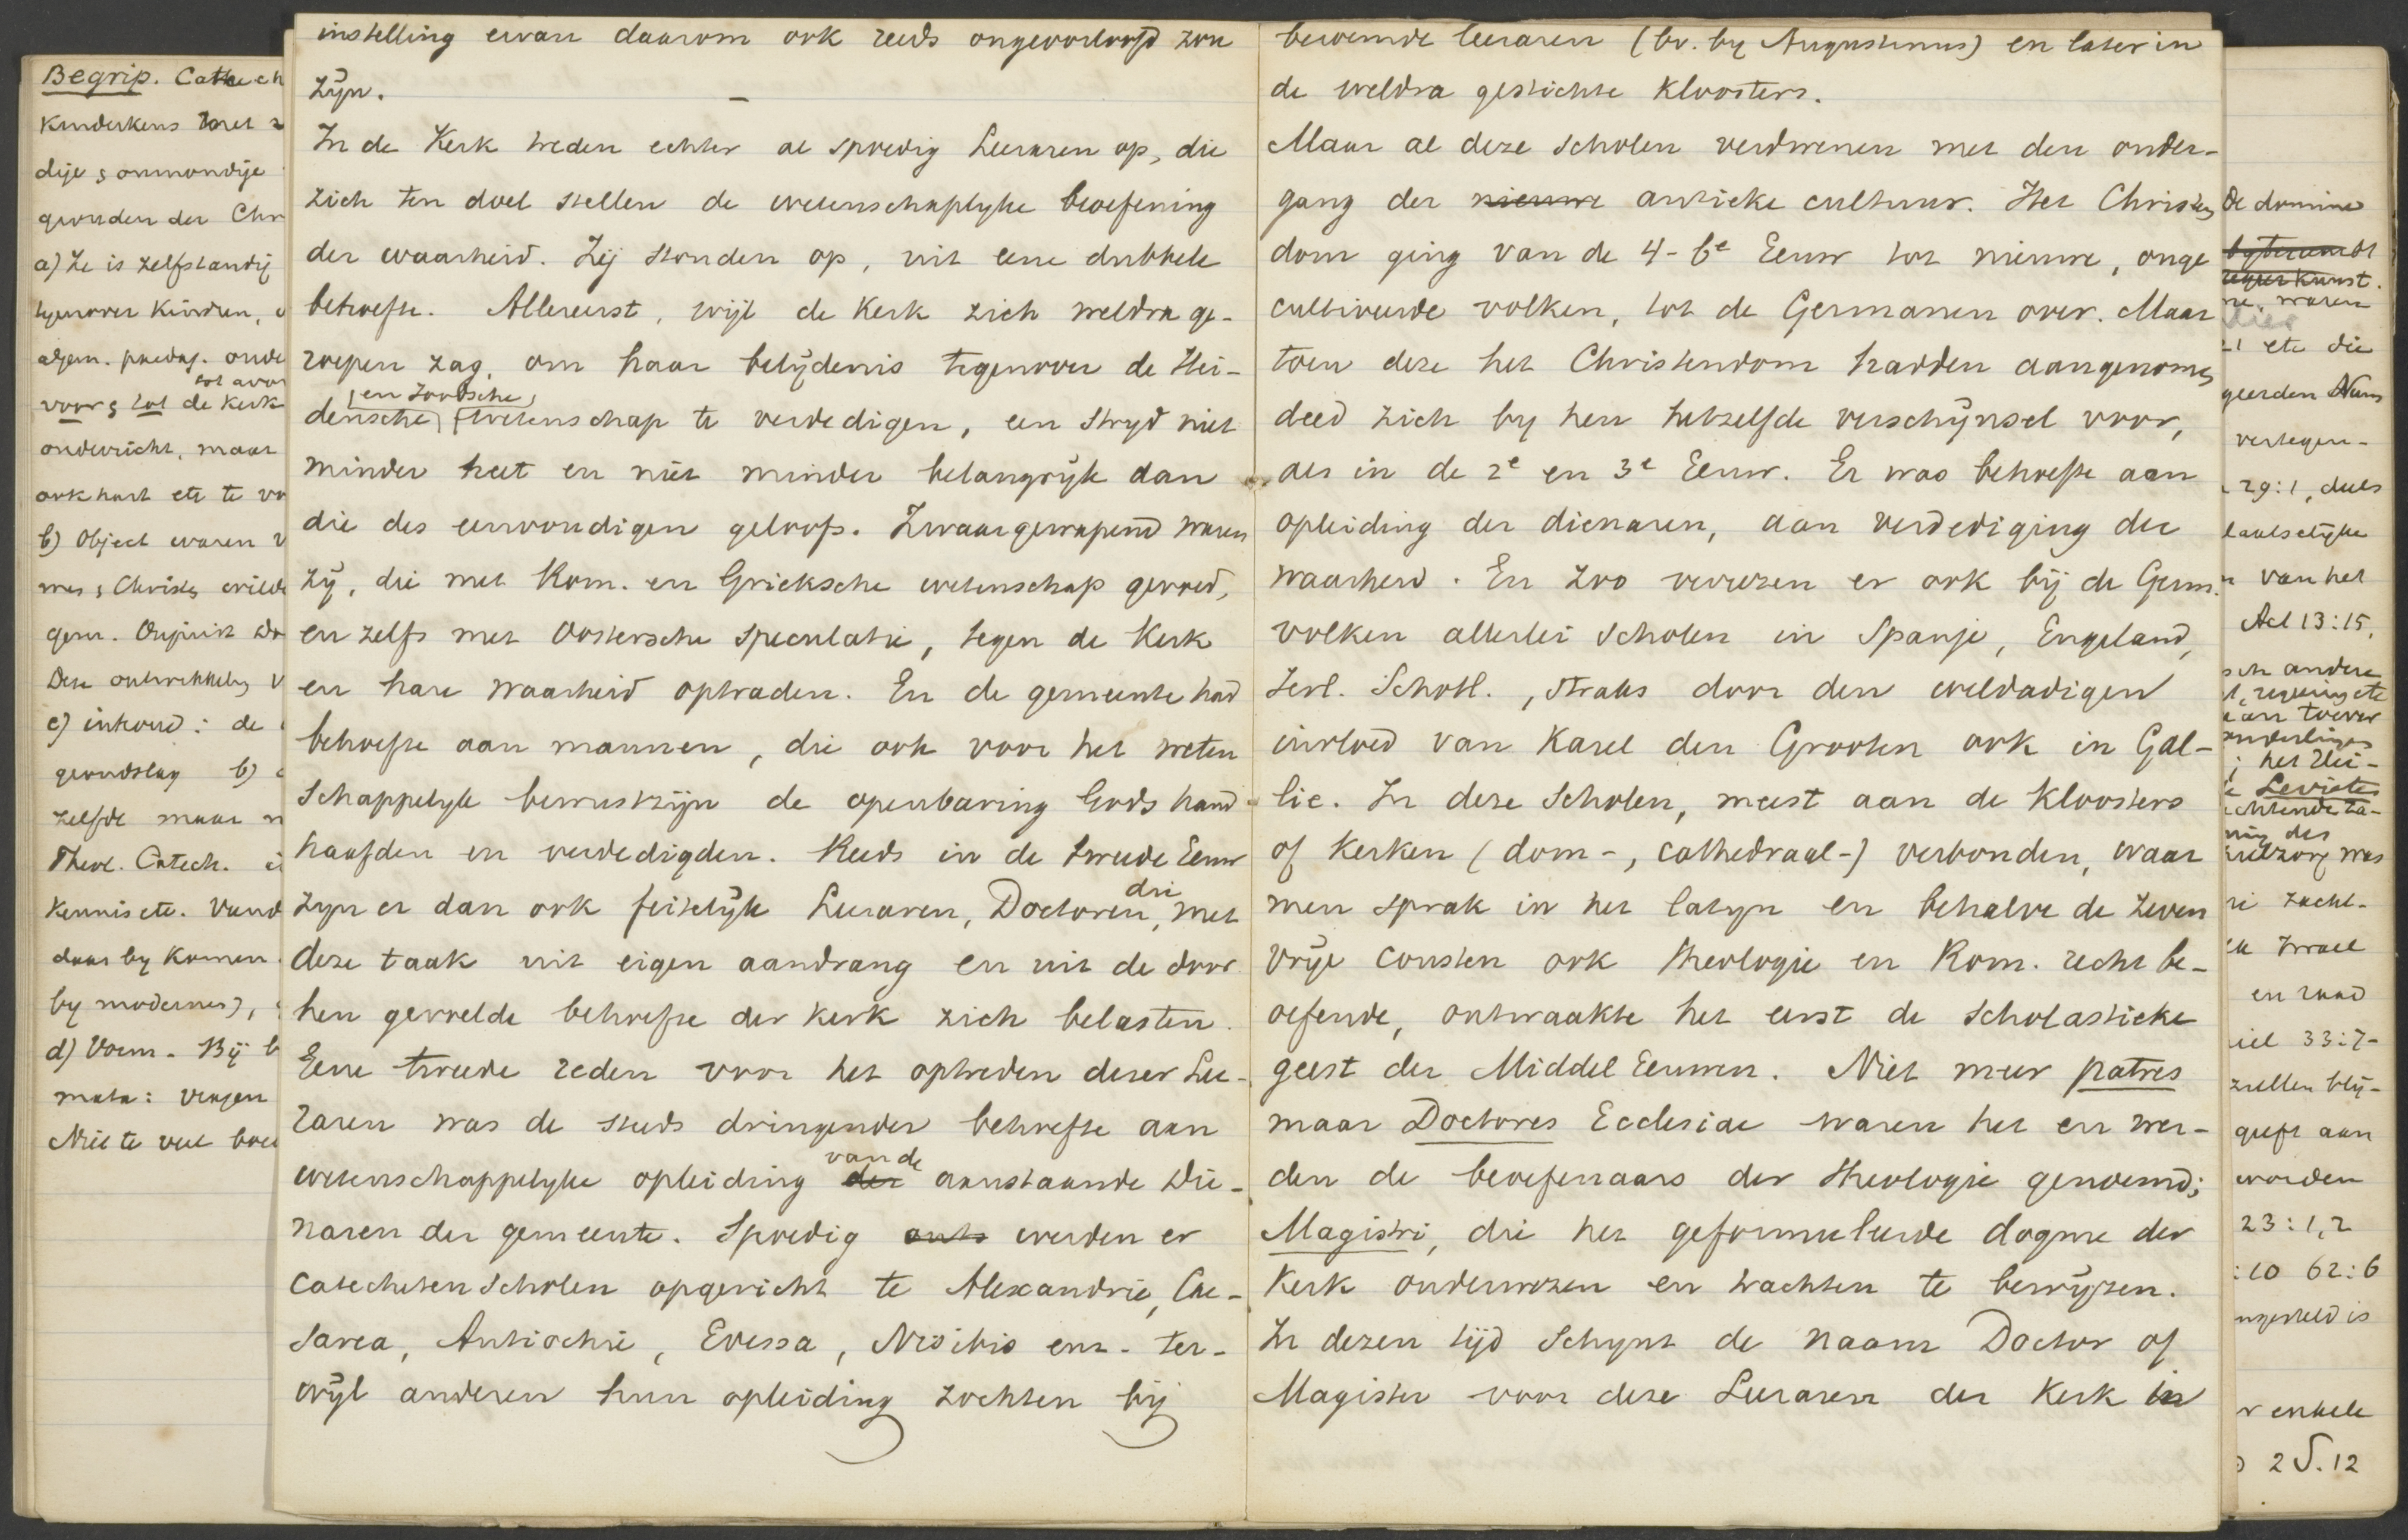 Begrip. Catech
Kinderkens
dije & onmondije
gronden der Chr
a) Ze is zelfstandig
tegenover Kinderen,
algem. paedag. onde
voor & tot de Kerk
onderricht, maar
ook hart etc te
b) Object waren
mes, Christ,
gem.
Deze ontwikkeling
c) inhoud: de
grondslag b)
zelfde maar
Theol. Catech.
Kennis etc.
daar by komen
by modernes),
d) Vorm. Bij
mata: vragen
Niet te veel
instelling ervan daarom ook reeds ongeoorloofd zou
zijn. –
In de Kerk treden echter al spoedig Leeraren op, die
zich ten doel stellen de wetenschaplyke beoefening
der waarheid. Zij stonden op, uit eene dubbele
behoefte. Allereerst, wijl de Kerk zich weldra ge-
roepen zag, om haar belijdenis tegenover de Hei-
densche (en Joodsche) wetenschap te verdedigen, een stryd niet
minder heet en niet minder belangryk dan
die des eenvoudigen geloofs. Zwaargewapend waren
zij, die met Rom. en Grieksche wetenschap gevoed,
en zelfs met Oostersche speculatie, tegen de Kerk
en hare waarheid optraden. En de gemeente had
behoefte aan mannen, die ook voor het weten
schappelyk bewustzijn de openbaring Gods hand
haafden en verdedigden. Reeds in de tweede Eeuw
zyn er dan ook feitelijk Leeraren, Doctoren, die met
deze taak uit eigen aandrang en uit de door
hen gevoelde behoefte der Kerk zich belasten.
Eene tweede reden voor het optreden dezer Lee-
raren was de steeds dringender behoefte aan
wetenschappelyke opleiding der van de aanstaande Die-
naren der gemeente. Spoedig werden er
Catechetenscholen opgericht te Alexandrie, Cae-
sarea, Antiochie, Edessa, Nisibis enz. ter-
wijl anderen hun opleiding zochten bij
beroemde leeraren (bv. by Augustinus) en later in
de weldra gestichte Kloosters.
Maar al deze scholen verdwenen met den onder-
gang der nieuwe antieke cultuur. Het Christen
dom ging van de 4-6e Eeuw tot nieuwe, onge
cultiveerde volken, tot de Germanen over. Maar
toen deze het Christendom hadden aangenomen,
deed zich by hen hetzelfde verschijnsel voor,
als in de 2e en 3e Eeuw. Er was behoefte aan
opleiding der dienaren, aan verdediging der
waarheid. En zoo verrezen er ook bij de Germ.
volken allerlei scholen in Spanje, Engeland,
Ierl. Schotl., straks door den weldadigen
invloed van Karel den Grooten ook in Gal-
lie. In deze scholen, meest aan de Kloosters
of Kerken (dom-, cathedraal-) verbonden, waar
men sprak in het latyn en behalve de zeven
vrije consten ook theologie en Rom. recht be-
oefende, ontwaakte het eerst de scholastieke
geest der Middel Eeuwen. Niet meer patres
maar Doctores Ecclesiae waren het en wer-
den de beoefenaars der theologie genoemd;
Magistri, die het geformuleerde dogme der
Kerk onderwezen en trachten te bewijzen.
In dezen tijd schynt de naam Doctor of
Magister voor deze Leeraren der Kerk in
De domine
kunst.
waren
etc die
geerden
vertegen-
29:1, deels
laatselijke
van het
Act 13:15,
andere
regeering etc
; het Hei-
Levieten
des
zorg was
zacht-
Israel
en raad
iel 33:7-
zullen blij-
geeft aan
worden
23:1,2
:10 62:6
ngesteld is
enkele
2 S. 12